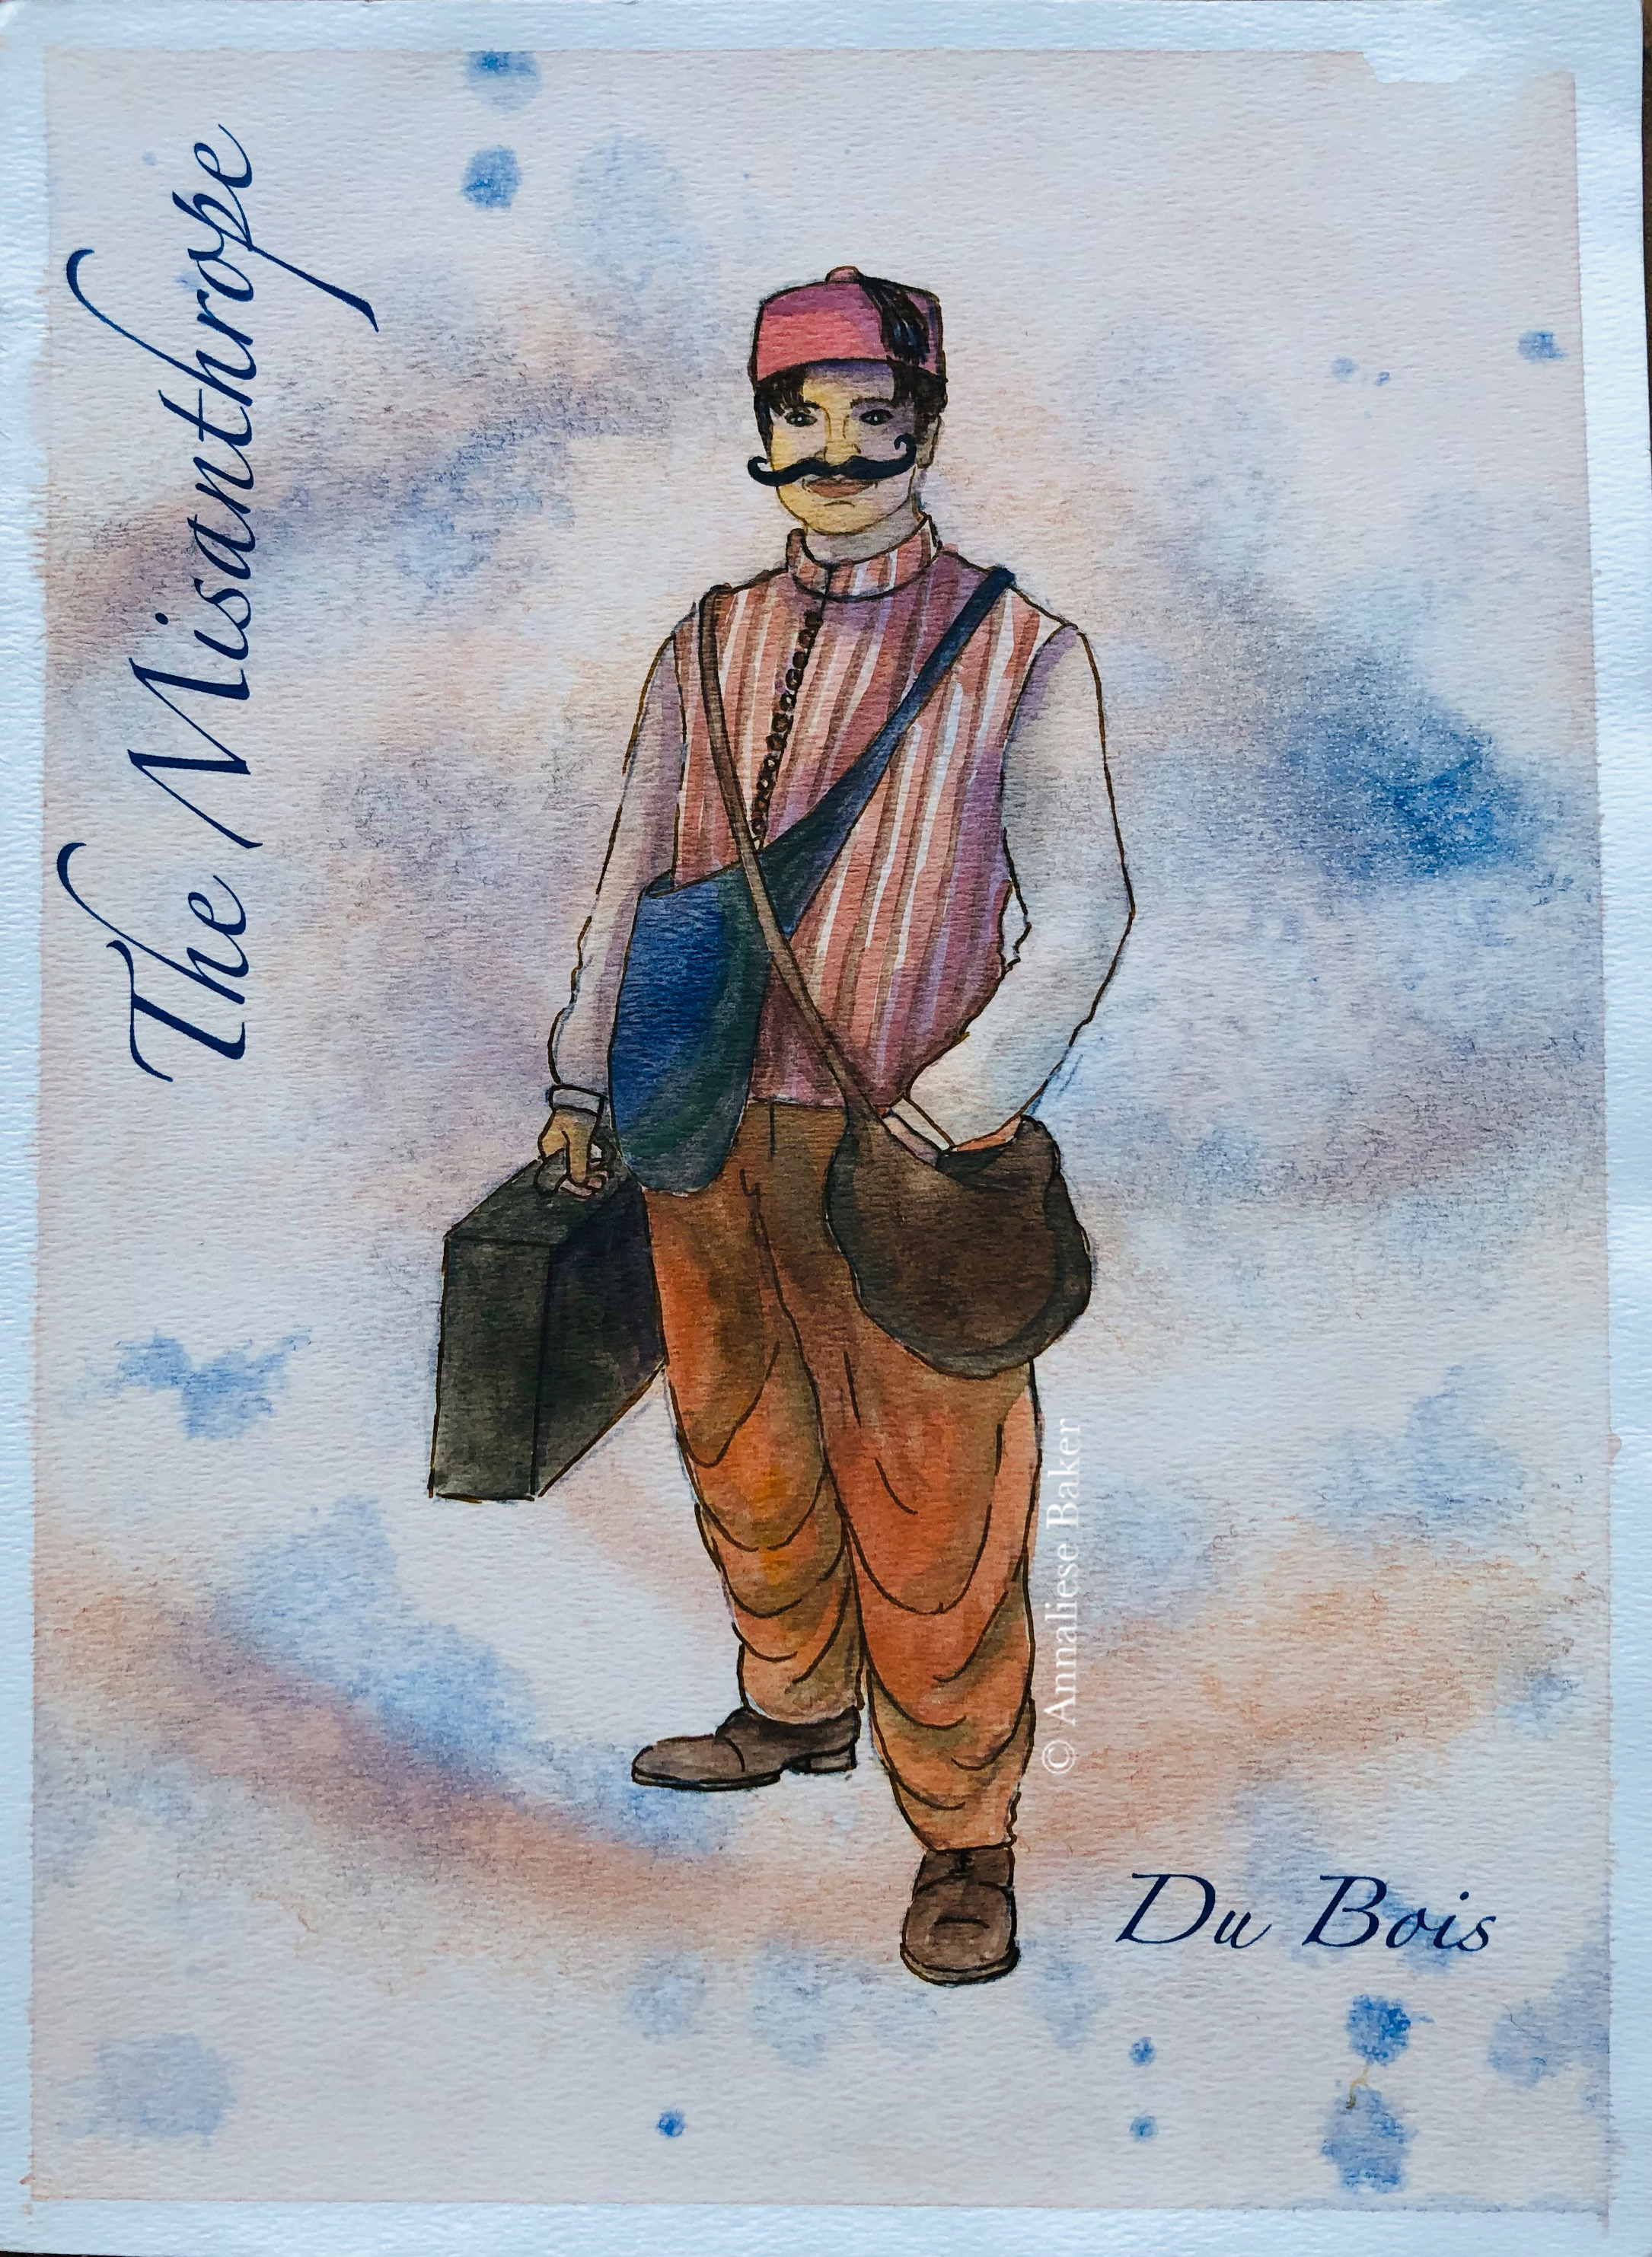 The Misanthrope
© Annaliese Baker
Du Bois